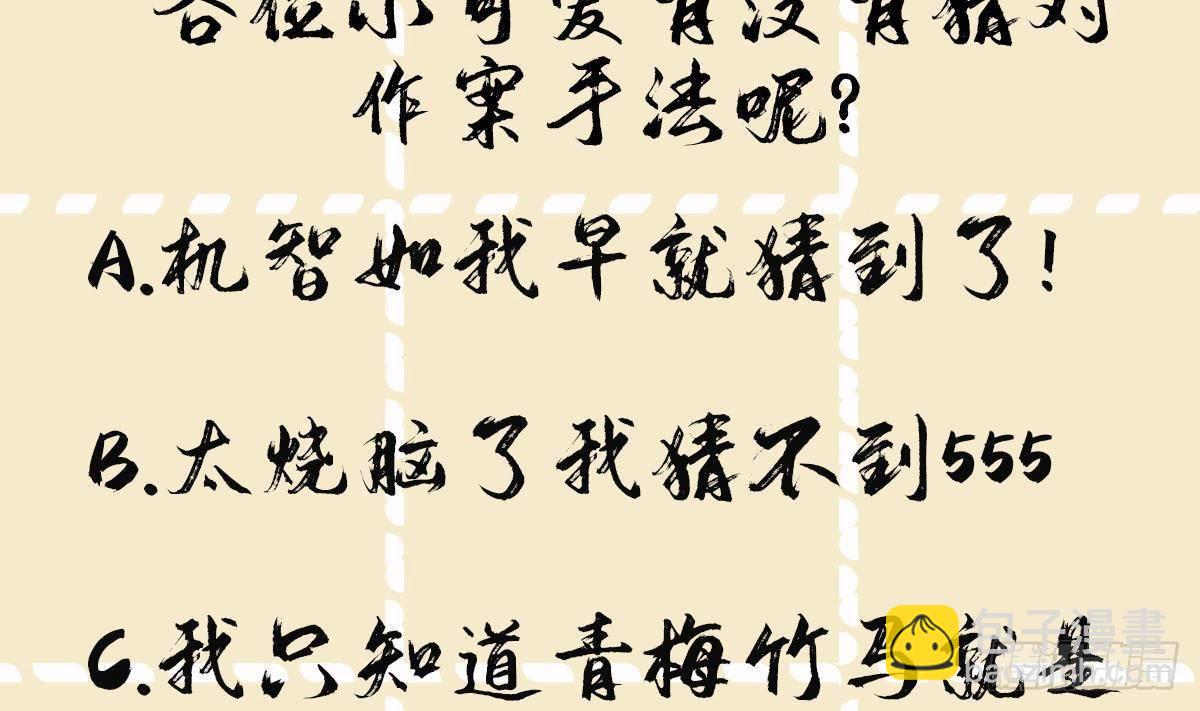 各位小可爱有没有猜对
作案手法呢?
A.机智如我早就猜到了!
B.太烧脑了我猜不到555
C.我只知道青梅竹马就是
包子漫畫
baozimh.com